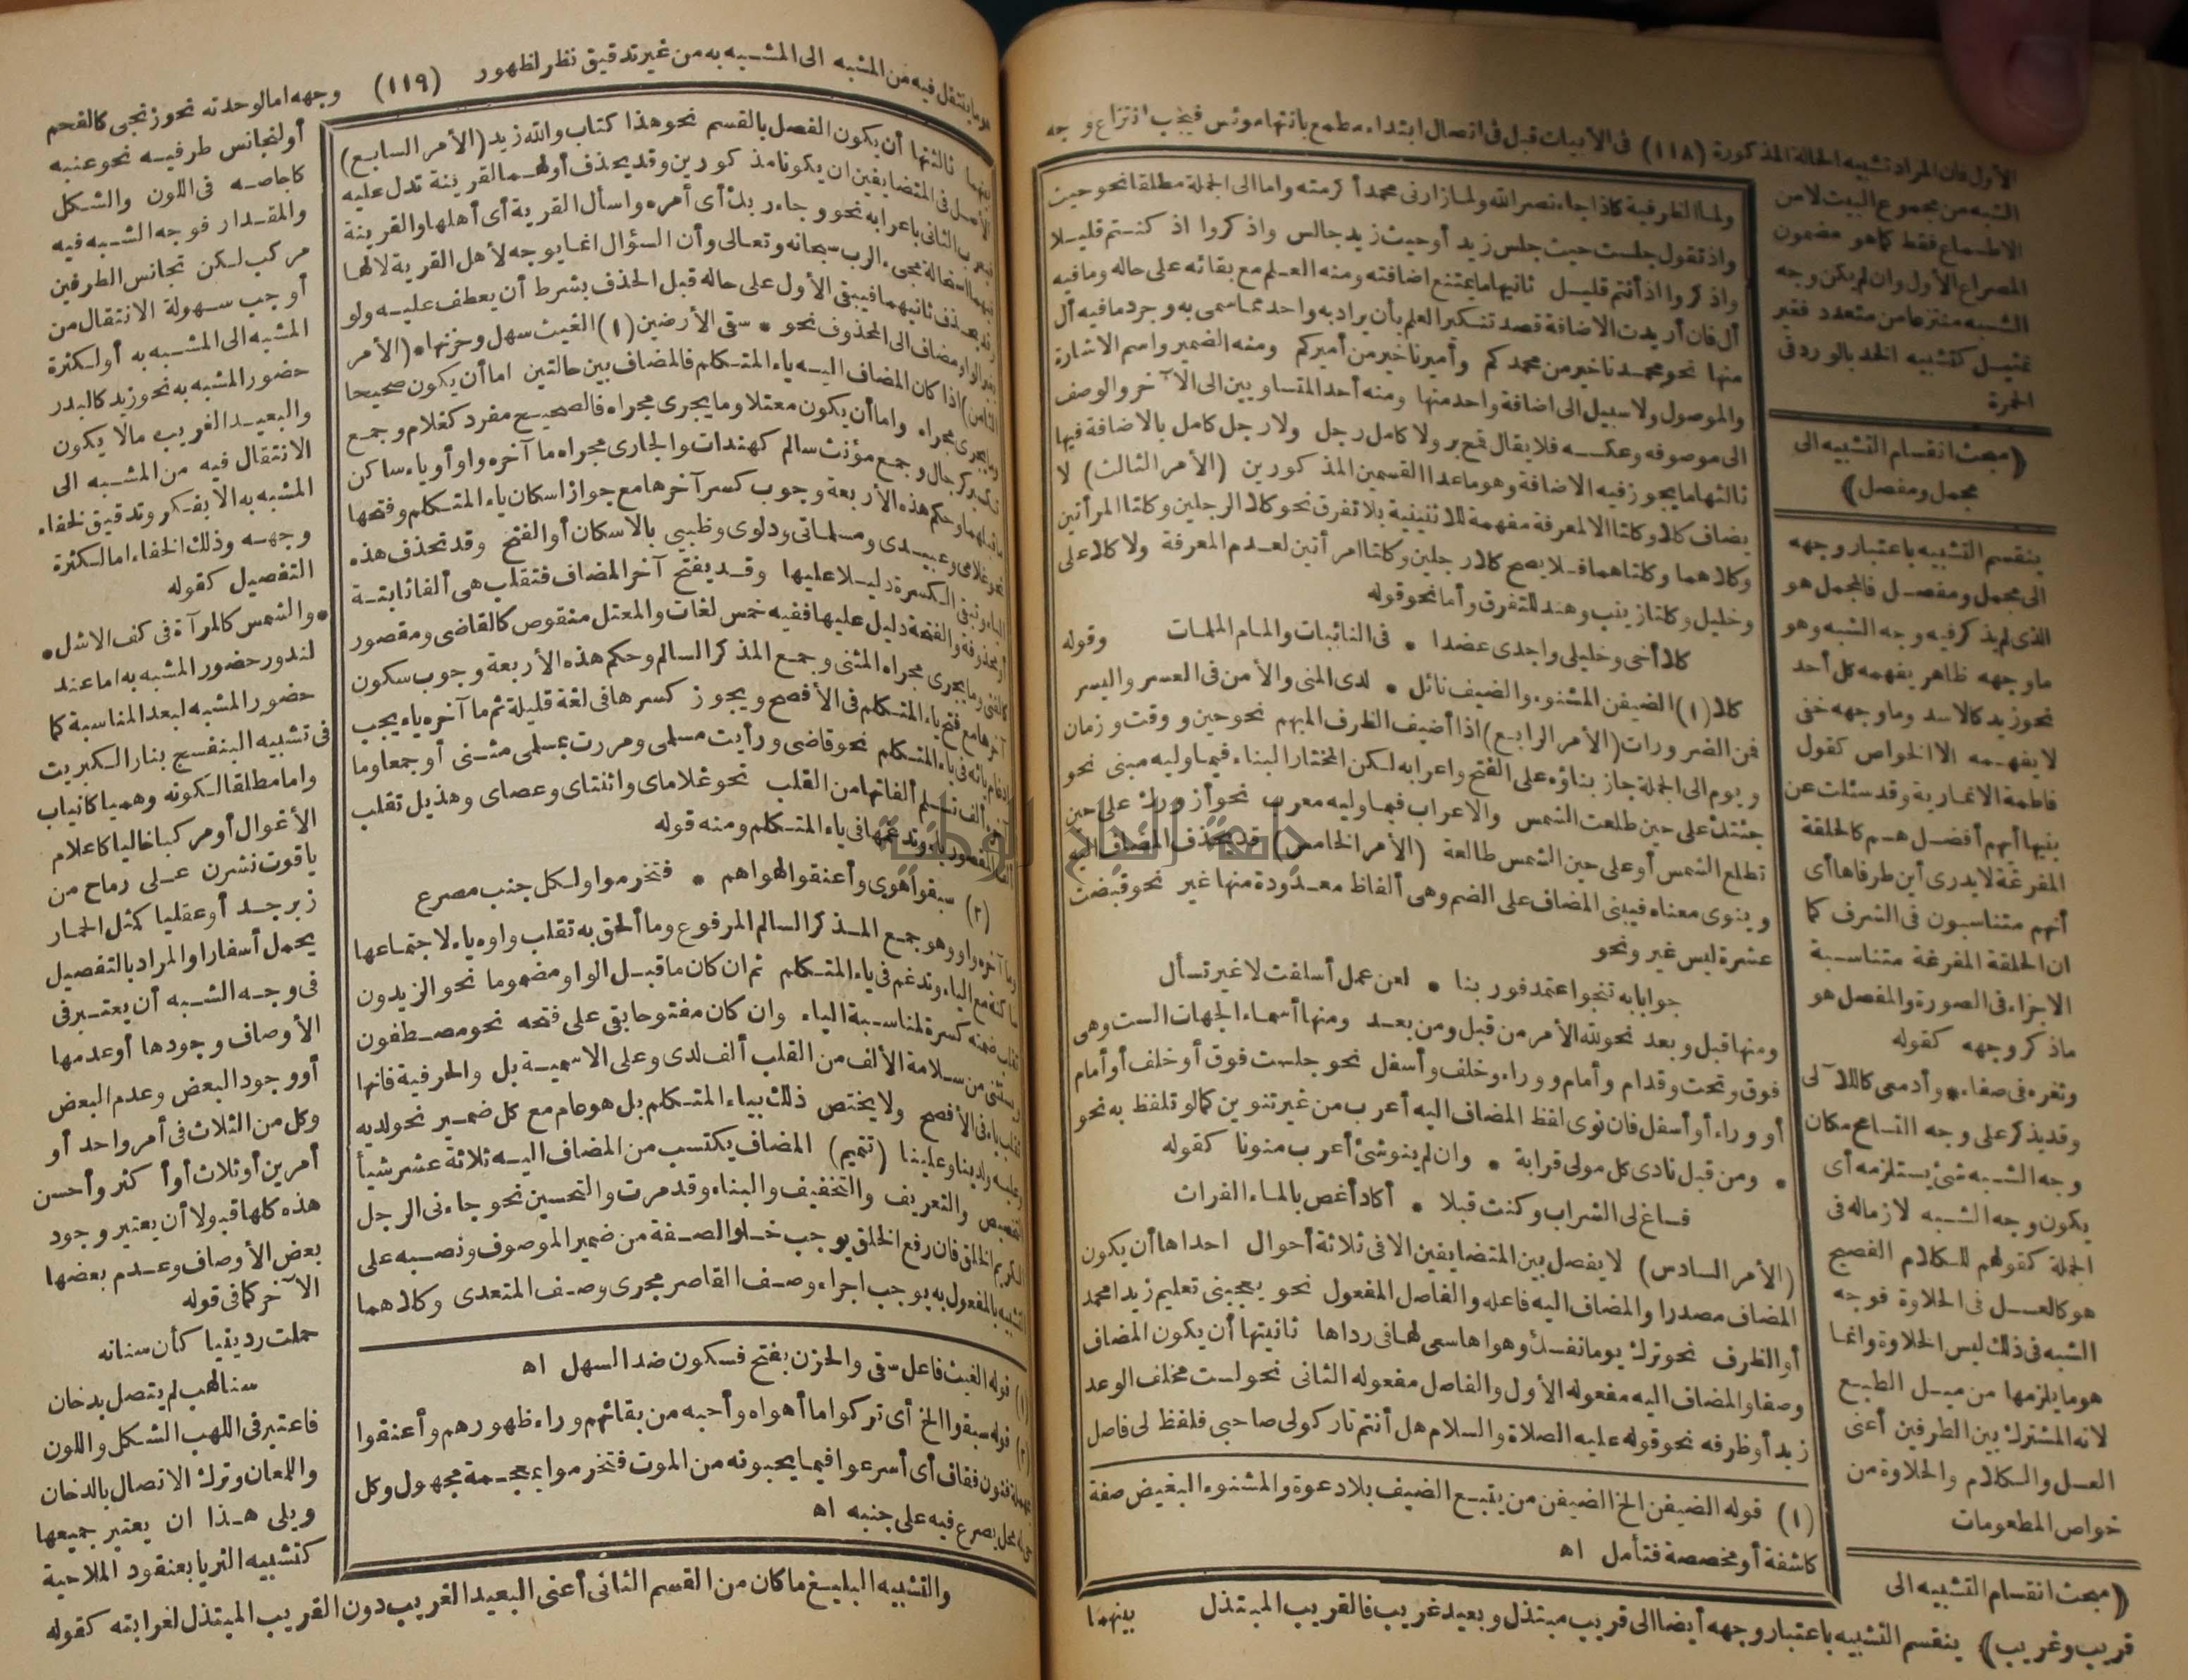 الأول فان المراد تشبيه الحالة المذكورة (١١٨) فى الأبيات قبل فى اتصال ابتداء مطمع بانتهاء موئس فيجب انتزاع وجه
الشبه من مجموع البيت لا من
الاطماع فقط كما هو مضمون
المصراع الأول وان لم يكن وجه
الشبه منتزعا من متعدد فغير
تمثيل كتشبيه الخد بالورد فى
الحمرة
(مبحث انقسام التشبيه الى
مجمل ومفصل)
ينقسم التشبيه باعتبار وجهه
الى مجمل ومفصل فالمجمل هو
الذى لم يذكر فيه وجه الشبه وهو
ما وجهه ظاهر يفهمه كل أحد
نحو زيد كالاسد وما وجهه خفى
لا يفهمه الا الخواص كقول
فاطمة الانمارية وقد سئلت عن
بنيها أيهم أفضل هم كالحلقة
المفرغة لا يدرى أين طرفاها أى
أنهم متناسبون فى الشرف كما
ان الحلقة المفرغة متناسبة
الاجزاء فى الصورة والمفصل هو
ماذكر وجهه كقوله
وثغره فى صفاء * وأدمعى كاللآلى
وقد يذكر على وجه التسامح مكان
وجه الشبه شئ يستلزمه أى
يكون وجه الشبه لازماله فى
الجملة كقولهم للكلام الفصيح
هو كالعسل فى الحلاوة فوجه
الشبه فى ذلك ليس الحلاوة وانما
هو ما يلزمها من ميل الطبع
لانه المشترك بين الطرفين أعنى
العسل والكلام والحلاوة من
خواص المطعومات
(مبحث انقسام التشبيه الى
قريب وغريب) ينقسم التشبيه باعتبار وجهه أيضا الى قريب مبتذل وبعيد غريب فالقريب المبتذل بينهما
ولما الظرفية كاذا جاء نصر الله ولما زارنى محمد أكرمته واما الى الجملة مطلقا نحو حيث
واذ تقول جلست حيث جلس زيد أو حيث زيد جالس واذكروا اذ كنتم قليلا
واذكروا اذ أنتم قليل ثانيها ما يمتنع اضافته ومنه العلم مع بقائه على حاله وما فيه
أل فان أريدت الاضافة قصد تنكير العلم بأن يراد به واحد مما سمى به وجرد ما فيه أل
منها نحو محمدنا خير من محمدكم وأميرنا خير من أميركم ومنه الضمير واسم الاشارة
والموصول ولا سبيل الى اضافة واحد منها ومنه أحد المتساويين الى الآخر والوصف
الى موصوفه وعكسه فلا يقال قمح بر ولا كامل رجل ولا رجل كامل بالاضافة فيها
ثالثها ما يجوز فيه الاضافة وهو ما عدا القسمين المذكورين (الأمر الثالث) لا
يضاف كلا وكلتا الا لمعرفة مفهمة للاثنينية بلا تفرق نحو كلا الرجلين وكلتا المرأتين
وكلاهما وكلتاهما فلا يصح كلا رجلين وكلتا امرأتين لعدم المعرفة ولا كلا على
وخليل وكلتا زينب وهند للتفرق وأما نحو قوله
كلا أخى وخليلى واجدى عضدا * فى النائبات والمام الملمات وقوله
كلا (١) الضيفن المشنوء والضيف نائل * لدى المنى والأمن فى العسر واليسر
فمن الضرورات (الأمر الرابع) اذا أضيف الظرف المبهم نحو حين ووقت وزمان
ويوم الى الجملة جاز بناؤه على الفتح واعرابه لكن المختار البناء فيما وليه مبنى نحو
جئتك على حين طلعت الشمس والاعراب فيما وليه معرب نحو أزورك على حين
تطلع الشمس أو على حين الشمس طالعة (الأمر الخامس) قد يحذف المضاف اليه
وينوى معناه فيبنى المضاف على الضم وهى ألفاظ معدودة منها غير نحو قبضت
عشرة ليس غير ونحو
جوابا به تنجو اعتمد فوربنا * لعن عمل أسلفت لا غير تسأل
ومنها قبل وبعد نحو لله الأمر من قبل ومن بعد ومنها أسماء الجهات الست وهى
فوق وتحت وقدام وأمام ووراء وخلف وأسفل نحو جلست فوق أو خلف أو أمام
أو وراء أو أسفل فان نوى لفظ المضاف اليه أعرب من غير تنوين كما لو تلفظ به نحو
* ومن قبل نادى كل مولى قرابة * وان لم ينو شئ أعرب منونا كقوله
فساغ لى الشراب وكنت قبلا * أكاد أغص بالماء الفرات
(الأمر السادس) لا يفصل بين المتضايفين الا فى ثلاثة أحوال احداها أن يكون
المضاف مصدرا والمضاف اليه فاعله والفاصل المفعول نحو يعجبنى تعليم زيدا محمد
أو الظرف نحو ترك يوما نفسك وهواها سعى لها فى رداها ثانيتها أن يكون المضاف
وصفا والمضاف اليه مفعوله الأول والفاصل مفعوله الثانى نحو لست مخلف الوعد
زيد أو ظرفه نحو قوله عليه الصلاة والسلام هل أنتم تاركولى صاحبى فلفظ لى فاصل
(١) قوله الضيفن الخ الضيفن من يتبع الضيف بلا دعوة والمشنوء البغيض صفة
كاشفة أو مخصصة فتأمل اه
ما ينتقل فيه من المشبه الى المشبه به من غير تدقيق نظر لظهور (١١٩) وجهه امالوحدته نحو زنجى كالفحم
بينهما ثالثتها أن يكون الفصل بالقسم نحو هذا كتاب والله زيد (الأمر السابع)
الأصل فى المتضايفين ان يكونا مذكورين وقد يحذف أولهما القرينة تدل عليه
فيعرب الثانى باعرابه نحو وجاء ربك أى أمره واسأل القرية أى أهلها والقرينة
فيهما استحالة مجىء الرب سبحانه وتعالى وأن السؤال انما يوجه لأهل القرية لا لها
وقد يحذف ثانيهما فيبقى الأول على حاله قبل الحذف بشرط أن يعطف عليه ولو
بغير الواو مضاف الى المحذوف نحو * سقى الأرضين (١) الغيث سهل وحزنها * (الأمر
الثامن) اذا كان المضاف اليه ياء المتكلم فالمضاف بين حالتين اما أن يكون صحيحا
وما يجرى مجراه واما أن يكون معتلا وما يجرى مجراه فالصحيح مفرد كغلام وجمع
تكسير كرجال وجمع مؤنث سالم كهندات والجارى مجراه ما آخره واو أو ياء ساكن
ما قبلهما وحكم هذه الأربعة وجوب كسر آخرها مع جواز اسكان ياء المتكلم وفتحها
نحو غلامى وعبيدى ومسلماتى ودلوى وظبيى بالاسكان أو الفتح وقد تحذف هذه
الياء وتبقى الكسرة دليلا عليها وقد يفتح آخر المضاف فتقلب هى ألفا ثابتة
أو محذوفة والفتحة دليل عليها ففيه خمس لغات والمعتل منقوص كالقاضى ومقصور
كالفتى وما يجرى مجراه المثنى وجمع المذكر السالم وحكم هذه الأربعة وجوب سكون
آخرها مع فتح ياء المتكلم فى الأفصح ويجوز كسرها فى لغة قليلة ثم ما آخره ياء يجب
ادغام يائه فى ياء المتكلم نحو قاضى ورأيت مسلمى ومررت بمسلمى مثنى أو جمعا وما
آخره ألف تسلم ألفاتها من القلب نحو غلاماى واثنتاى وعصاى وهذيل تقلب
ألف المقصور ياء وتدغمها فى ياء المتكلم ومنه قوله
(٢) سبقوا هوى وأعنقوا لهواهم * فتخرموا ولكل جنب مصرع
وما آخره واو وهو جمع المذكر السالم المرفوع وما ألحق به تقلب واوه ياء لاجتماعها
ساكنة مع الياء وتدغم فى ياء المتكلم ثم ان كان ما قبل الواو مضموما نحو الزيدون
تقلب ضمته كسرة لمناسبة الياء وان كان مفتوحا بقى على فتحه نحو مصطفون
ويستثنى من سلامة الألف من القلب ألف لدى وعلى الاسمية بل والحرفية فانها
تقلب ياء فى الأفصح ولا يختص ذلك بياء المتكلم بل هو عام مع كل ضمير نحو لديه
وعليه ولدينا وعلينا (تتميم) المضاف يكتسب من المضاف اليه ثلاثة عشر شيأ
التخصيص والتعريف والتخفيف والبناء وقد مرت والتحسين نحو جاءنى الرجل
الكريم الخلق فان رفع الخلق يوجب خلو الصفة من ضمير الموصوف ونصبه على
التشبيه بالمفعول به يوجب اجراء وصف القاصر مجرى وصف المتعدى وكلاهما
(١) قوله الغيث فاعل سقى والحزن بفتح فسكون ضد السهل اه
(٢) قوله سبقوا الخ أى تركوا ما أهواه وأحبه من بقائهم وراء ظهورهم وأعنقوا
بمهملة فنون فقاف أى أسرعوا فيما يحبونه من الموت فتخرموا بمعجمة مجهول وكل
محل يصرع فيه على جنبه اه
أو لتجانس طرفيه نحو عنبه
كاجاصه فى اللون والشكل
والمقدار فوجه الشبه فيه
مركب لكن تجانس الطرفين
أوجب سهولة الانتقال من
المشبه الى المشبه به أو لكثرة
حضور المشبه به نحو زيد كالبدر
والبعيد الغريب مالا يكون
الانتقال فيه من المشبه الى
المشبه به الا بفكر وتدقيق لخفاء
وجهه وذلك الخفاء اما لكثرة
التفصيل كقوله
* والشمس كالمرآة فى كف الاشل *
لندور حضور المشبه به اما عند
حضور المشبه لبعد المناسبة كما
فى تشبيه البنفسج بنار الكبريت
واما مطلقا لكونه وهميا كانياب
الأغوال أو مركبا خاليا كاعلام
ياقوت نشرن على رماح من
زبرجد أو عقليا كمثل الحمار
يحمل أسفارا والمراد بالتفصيل
فى وجه الشبه أن يعتبر فى
الأوصاف وجودها أو عدمها
أو وجود البعض وعدم البعض
وكل من الثلاث فى أمر واحد أو
أمرين أو ثلاث أو أكثر وأحسن
هذه كلها قبولا أن يعتبر وجود
بعض الأوصاف وعدم بعضها
الآخر كما فى قوله
حملت ردينيا كأن سنانه
سنا لهب لم يتصل بدخان
فاعتبر فى اللهب الشكل واللون
واللمعان وترك الاتصال بالدخان
ويلى هذا ان يعتبر جميعها
كتشبيه الثريا بعنقود الملاحية
والتشبيه البليغ ما كان من القسم الثانى أعنى البعيد الغريب دون القريب المبتذل لغرابته كقوله
جامعة النجاح الوطنية